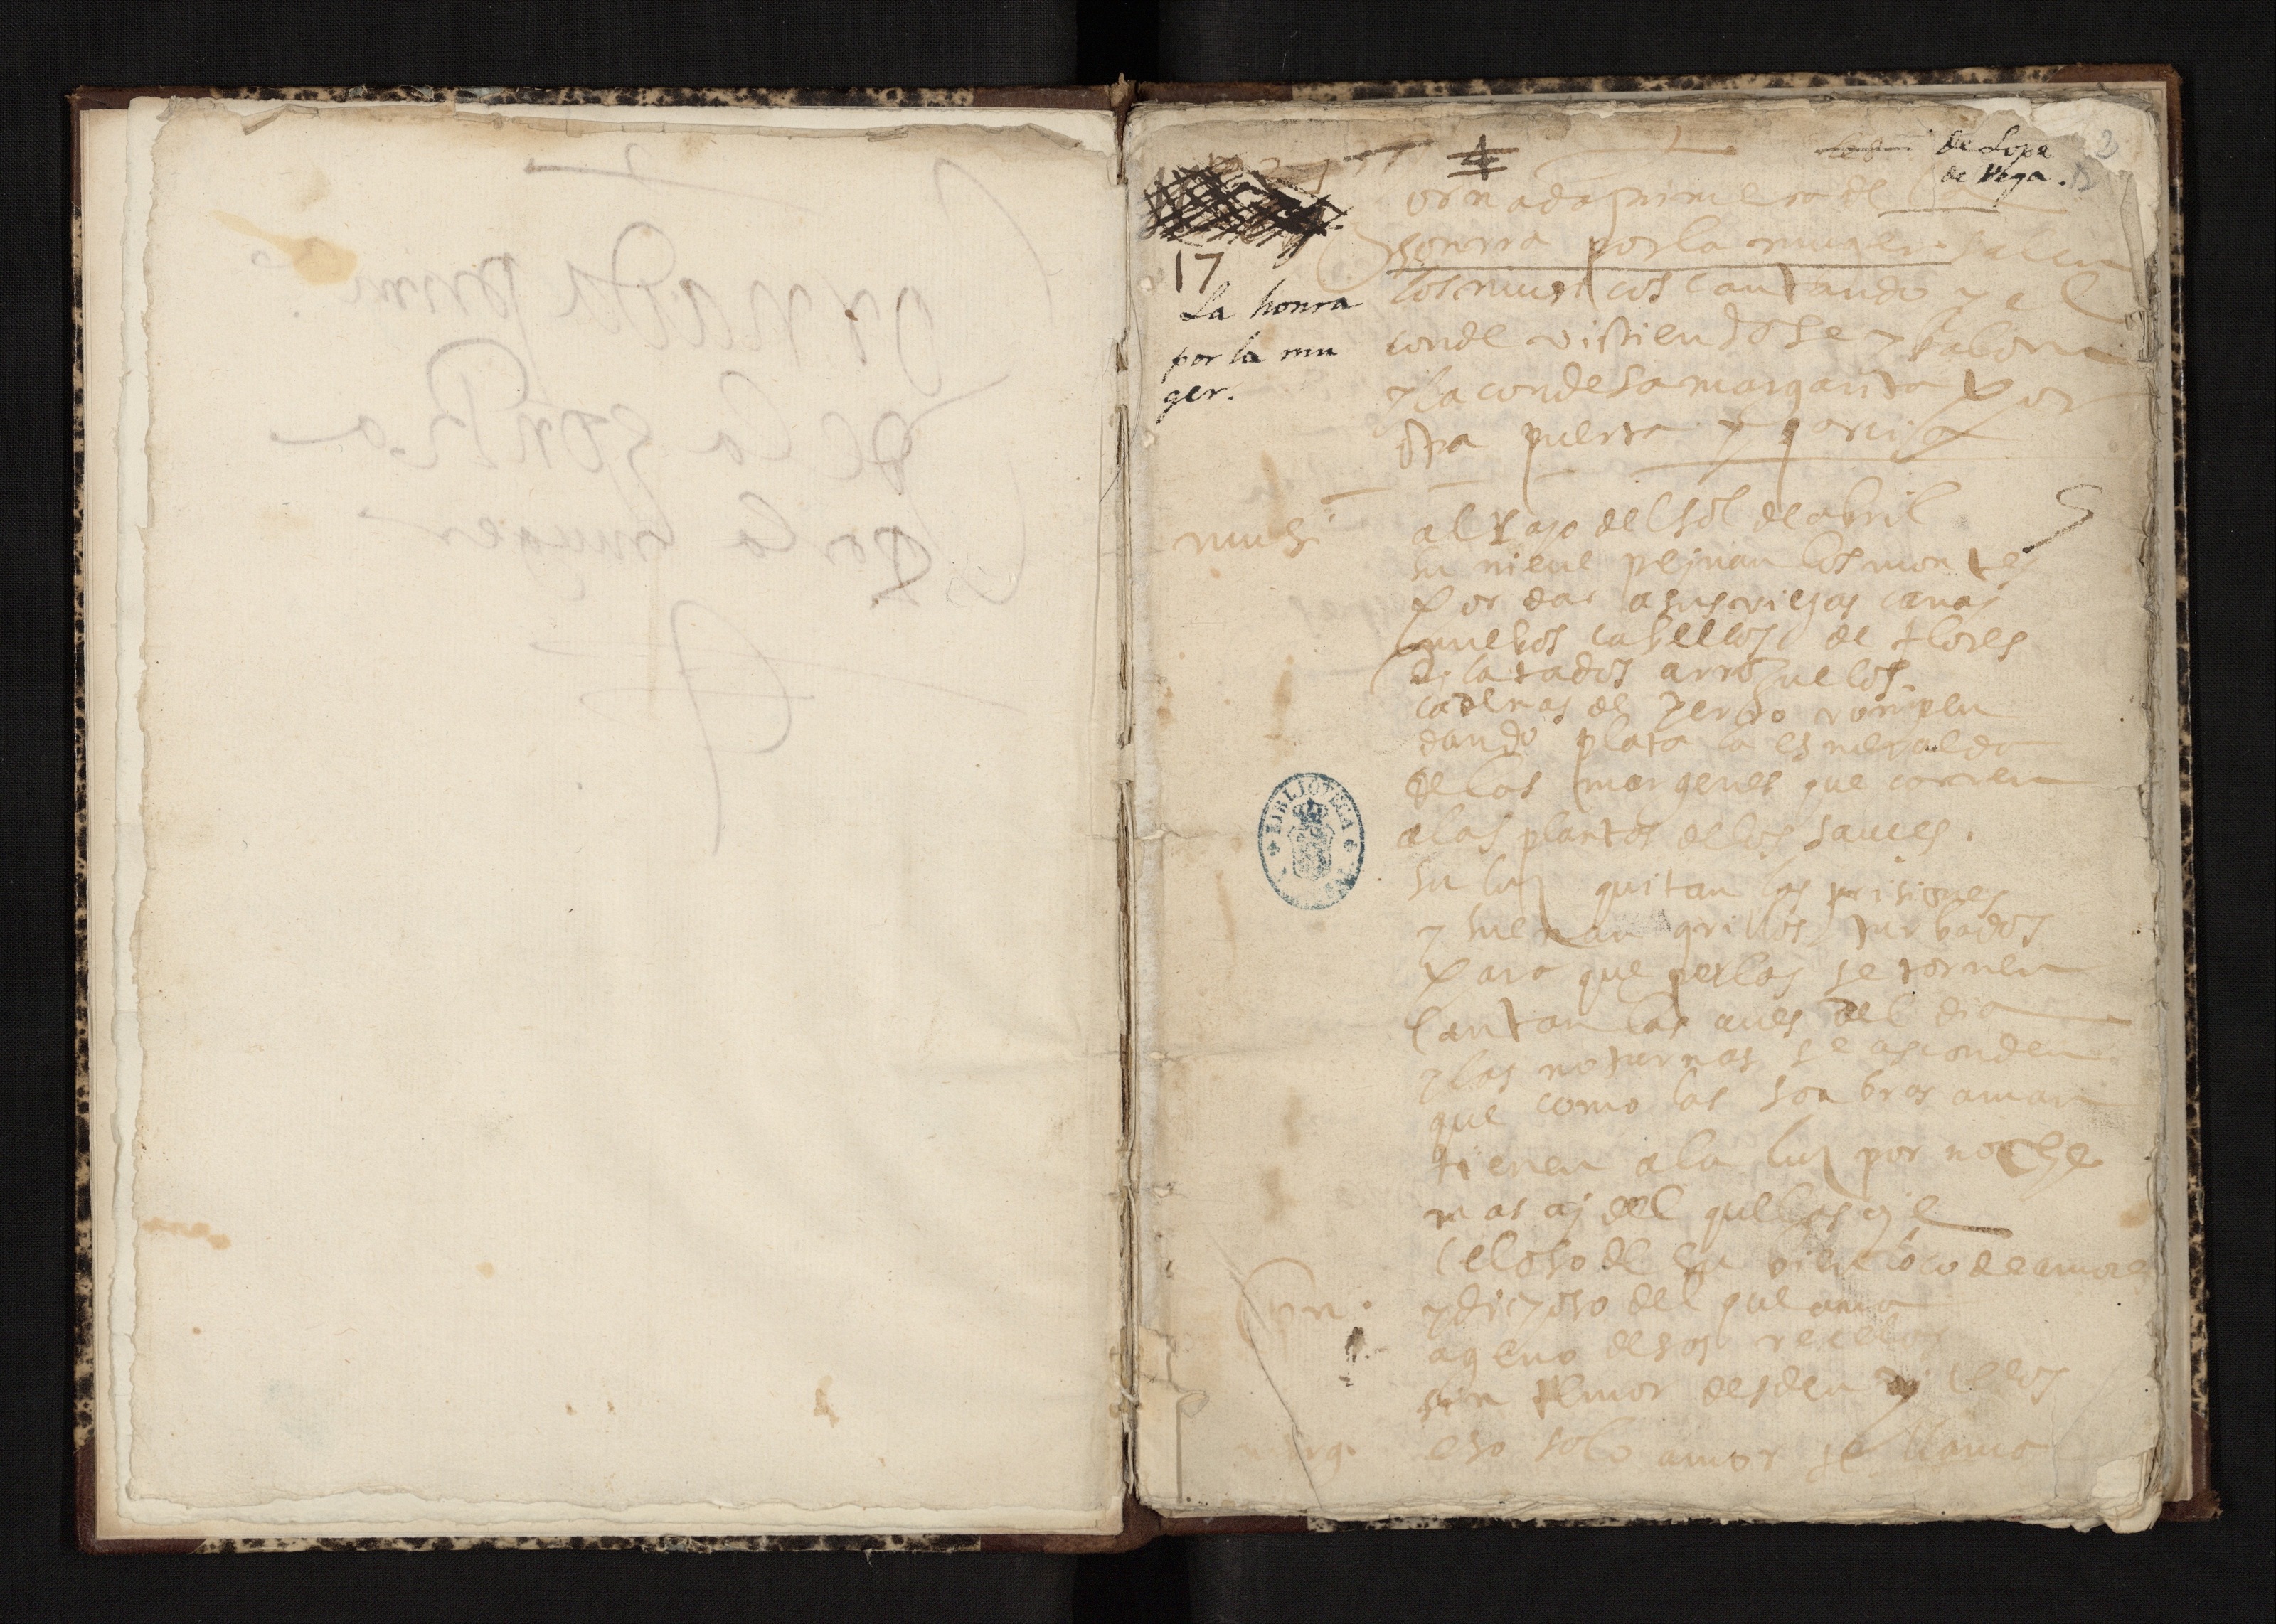 de Lope
de Vega.
2
17
La honra
por la mu
ger.
ornada primera de
honrra por la muger. salen
los musicos cantando y el
conde vistiendose y
y la condesa margarita por
otra puerta y
musi
al rayo del sol de abril
su nieue peynan los montes
por dar a sus viejas canas
nuebos cabellos de flores
dilatados arroyuelos
cadenas de yerro rompen
dando plata la esmeralda
de las margenes que corren
a las plantas de los sauces.
su luz quitan las prisiones
y suenan grillos turbados
para que perlas se tornen
cantan las aues del dia
y las noturnas se asconden
que como las sonbras aman
tienen a la luz por noche
mas ay del que
celoso de su bien loco de amores
con.
y dichoso del que ama
ageno de sos recelos
sin temor desden ni celos
marg.
eso solo amor se llama
BIBLIOTECA